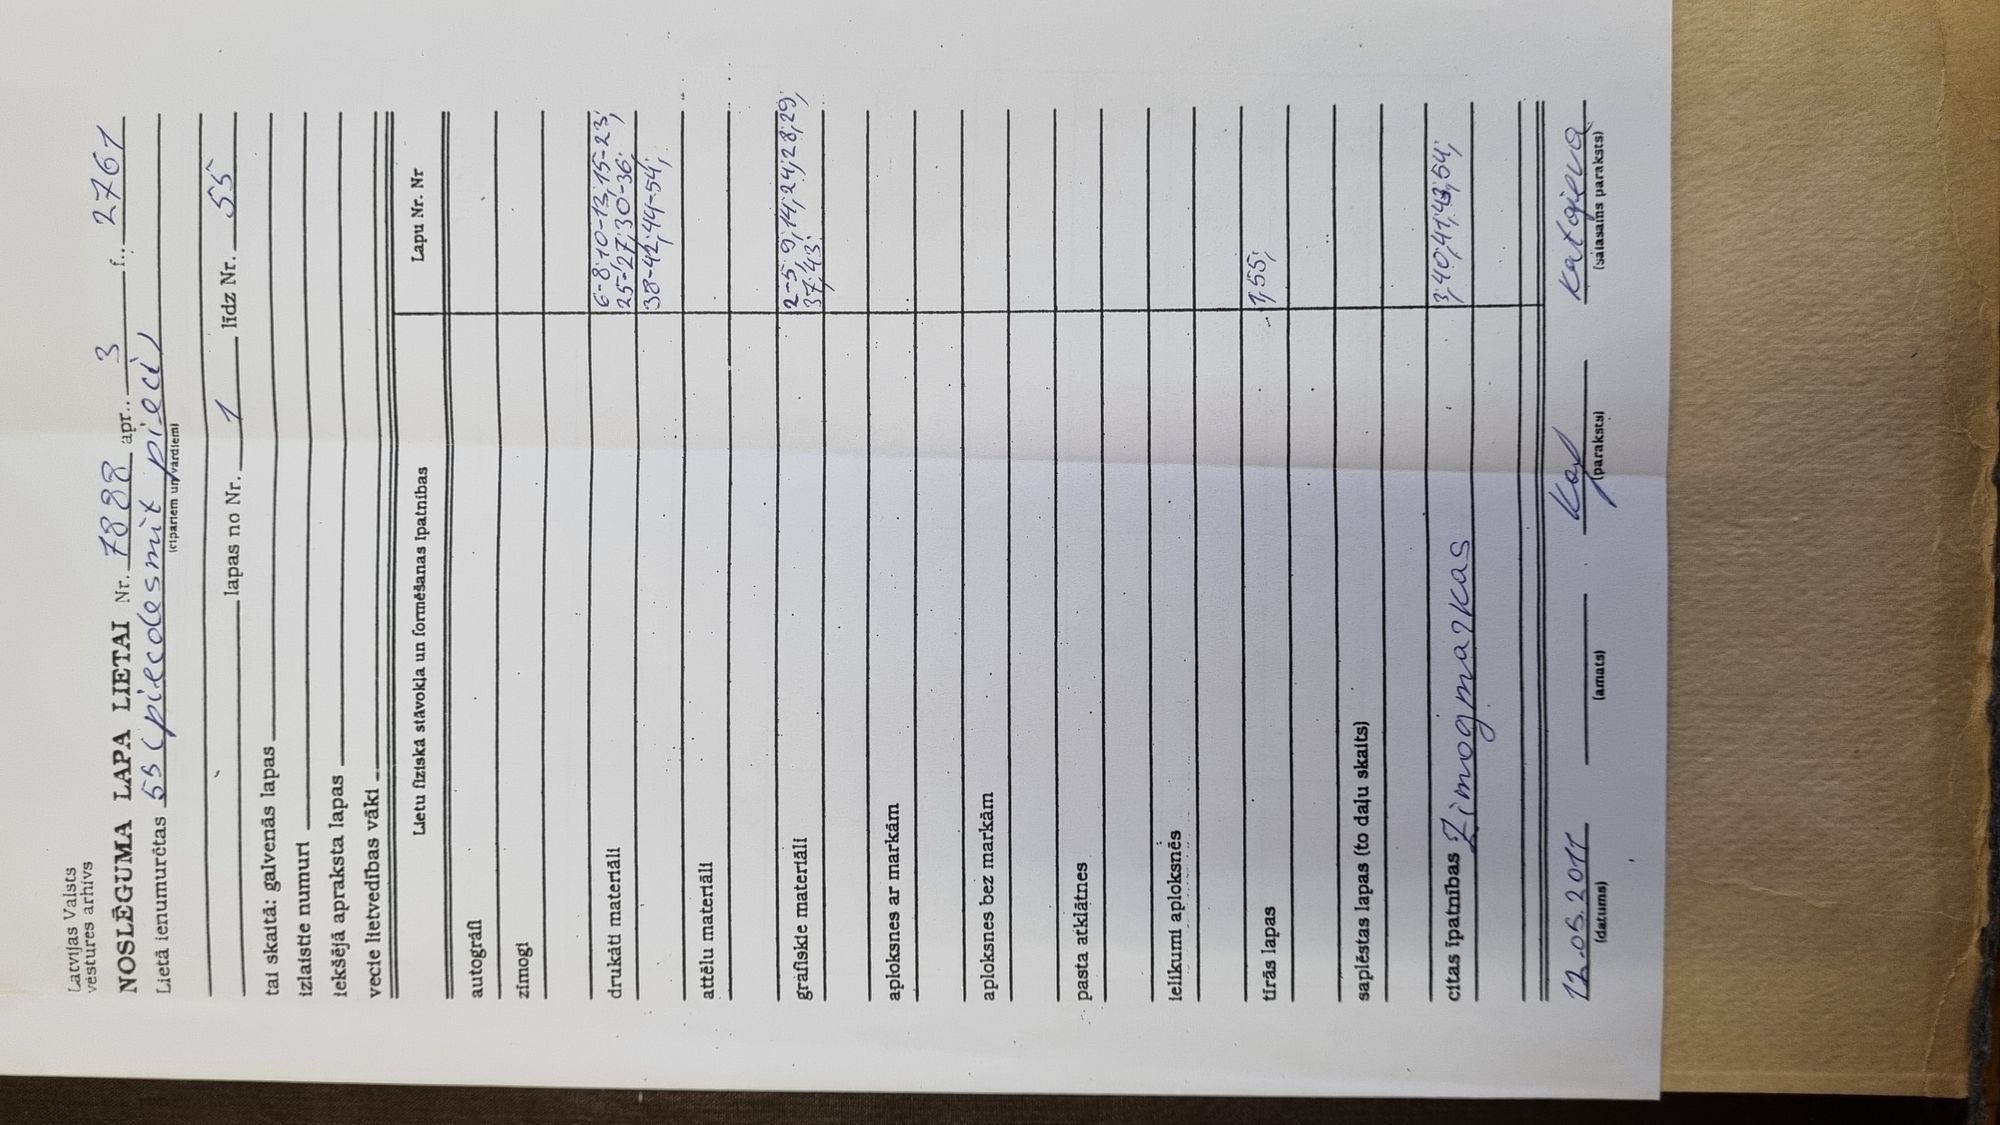 Latvijas Valsts
vēstures arhīvs
NOSLĒGUMA LAPA LIETAI Nr. 7888 apr.. 3 f.. 2761
Lietā ienumurētas 55 (piecdesmit pieci)
(cipariem un vārdiem)
lapas no Nr. 1 līdz Nr. 55
tai skaitā: galvenās lapas
izlaistie numuri
iekšējā apraksta lapas
vecie lietvedības vāki
Lietu fiziskā stāvokļa un formēšanas īpatnības Lapu Nr. Nr
autogrāfi
zīmogi
drukāti materiāli 6-8; 10-13; 15-23;
25-27; 30-36;
38-42; 44-54;
attēlu materiāli
grafiskie materiāli 2-5; 9; 14; 24; 28; 29;
37; 43;
aploksnes ar markām
aploksnes bez markām
pasta atklātnes
ielikumi aploksnēs
tīrās lapas 1; 55;
saplēstas lapas (to daļu skaits)
citas īpatnības Zimogmarkas 3; 40; 41; 43; 54;
12.05.2011
(datums) (amats) (paraksts) (salasāms paraksts)